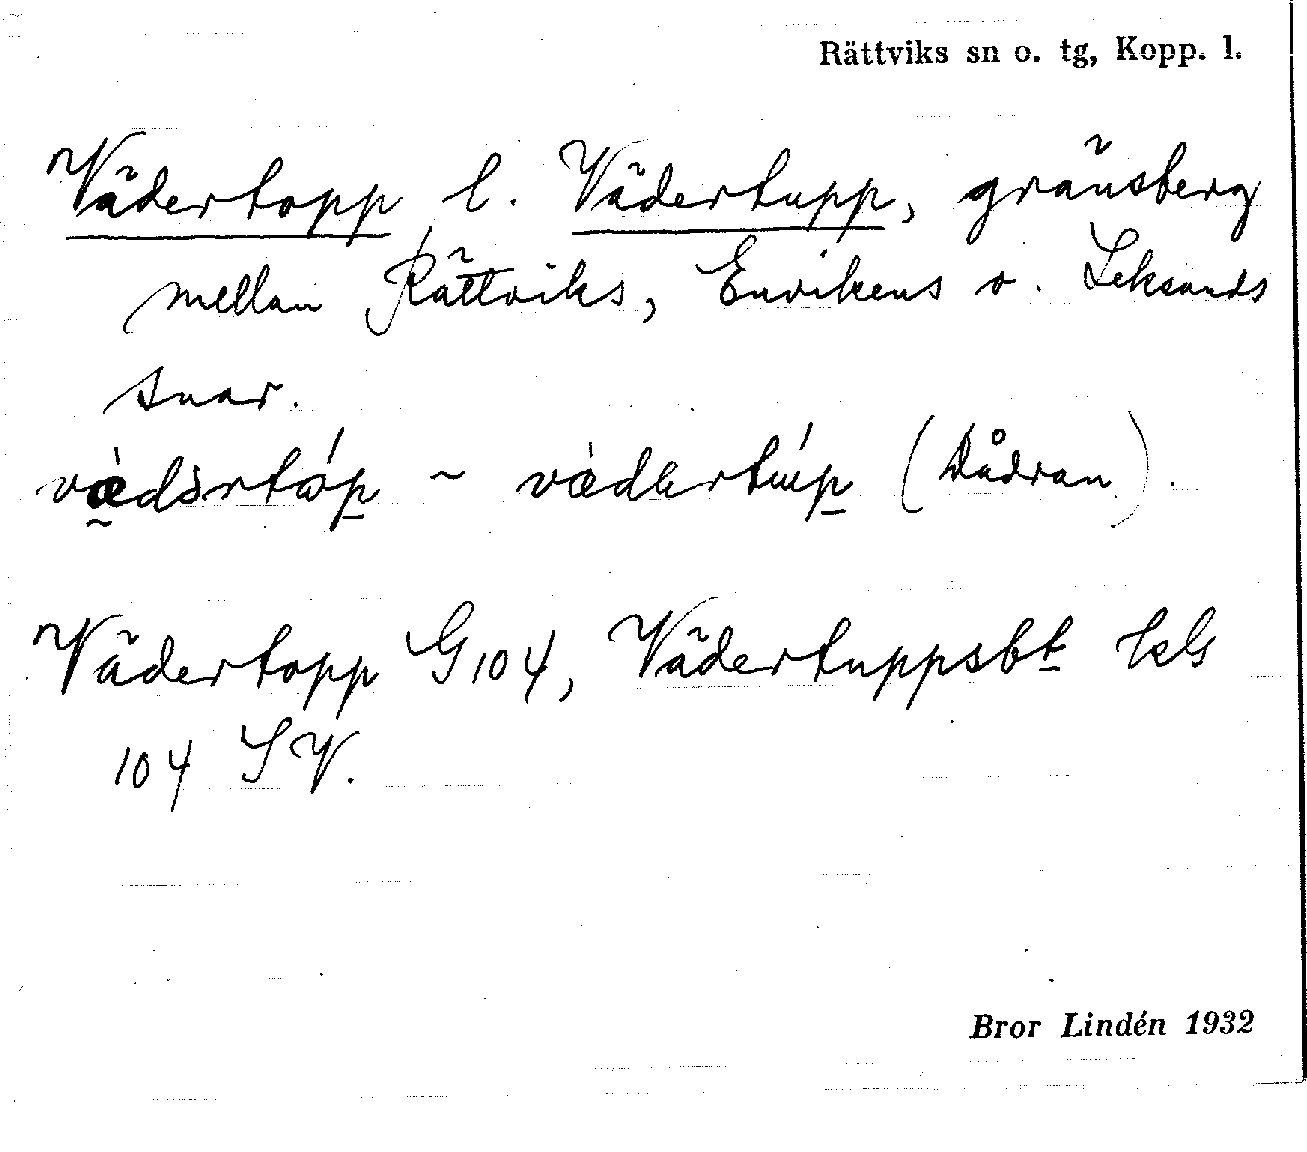 Rättviks sn o. tg, Kopp. l.
Vädertopp l. Vädertupp, gränsberg
mellan Rättviks, Envikens o. Leksands
snar.
~ (Dådran).
Vädertopp G 104, Vädertuppsbt
104 SV.
Bror Lindén 1932